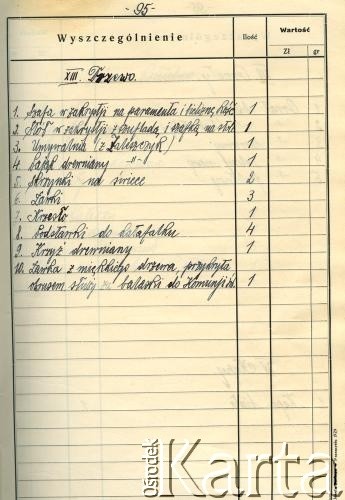 -95-
Wyszczególnienie Ilość Wartość
Zł gr
XIII. Drzewo.
1. Szafa w zakrystji na paramenta i bieliznę kość 1
2. Stół w zakrystji z szufladą i szafką na stole 1
3. Umywalnia (z Zaleszczyk) 1
4. bażyk drewniany -"- 1
5. Skrzynki na świece 2
6. Ławki 3
7. Krzesło 1
8. Podstawki do katafalku 4
9. Krzyż drewniany 1
10. Ławka z miękkiego drzewa, przykryta
obrusem służy za balaski do Komunji św. 1
Ośrodek
Karta